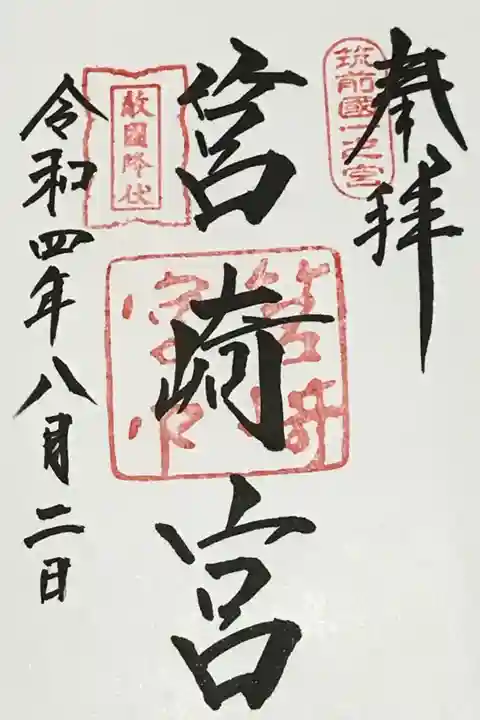 奉拝
筑前國一之宮
筥崎宮
敵國降伏
令和四年八月二日